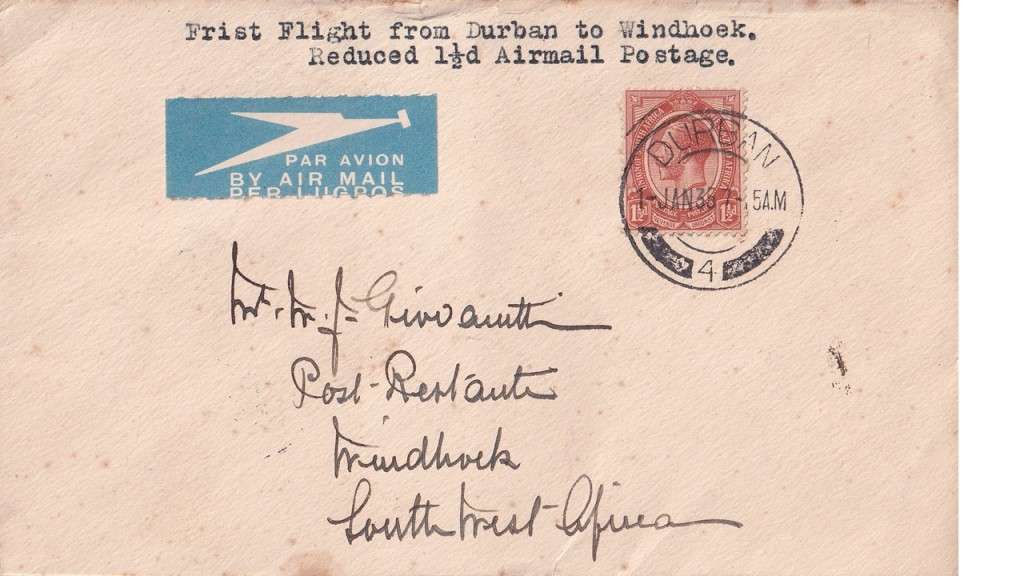 Frist Flight from Durban to Windhoek.
Reduced 1½d Airmail Postage.
PAR AVION
BY AIR MAIL
PER LUGPOS
DURBAN
1-JAN35 7-15A.M
1½d 1½d
4
Mr. M. J. Giovanetti
Post-Restante
Windhoek
South West Africa